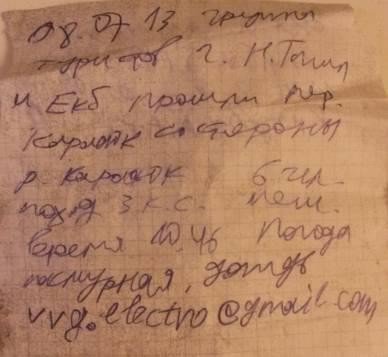 08.07.13 группа
туристов г. Н.Тагил
и Екб прошли пер.
со стороны
р. 6 чел.
поход 3 к.с. пеш.
Время 10.46 Погода
пасмурная, дождь
vvg.electro@gmail.com